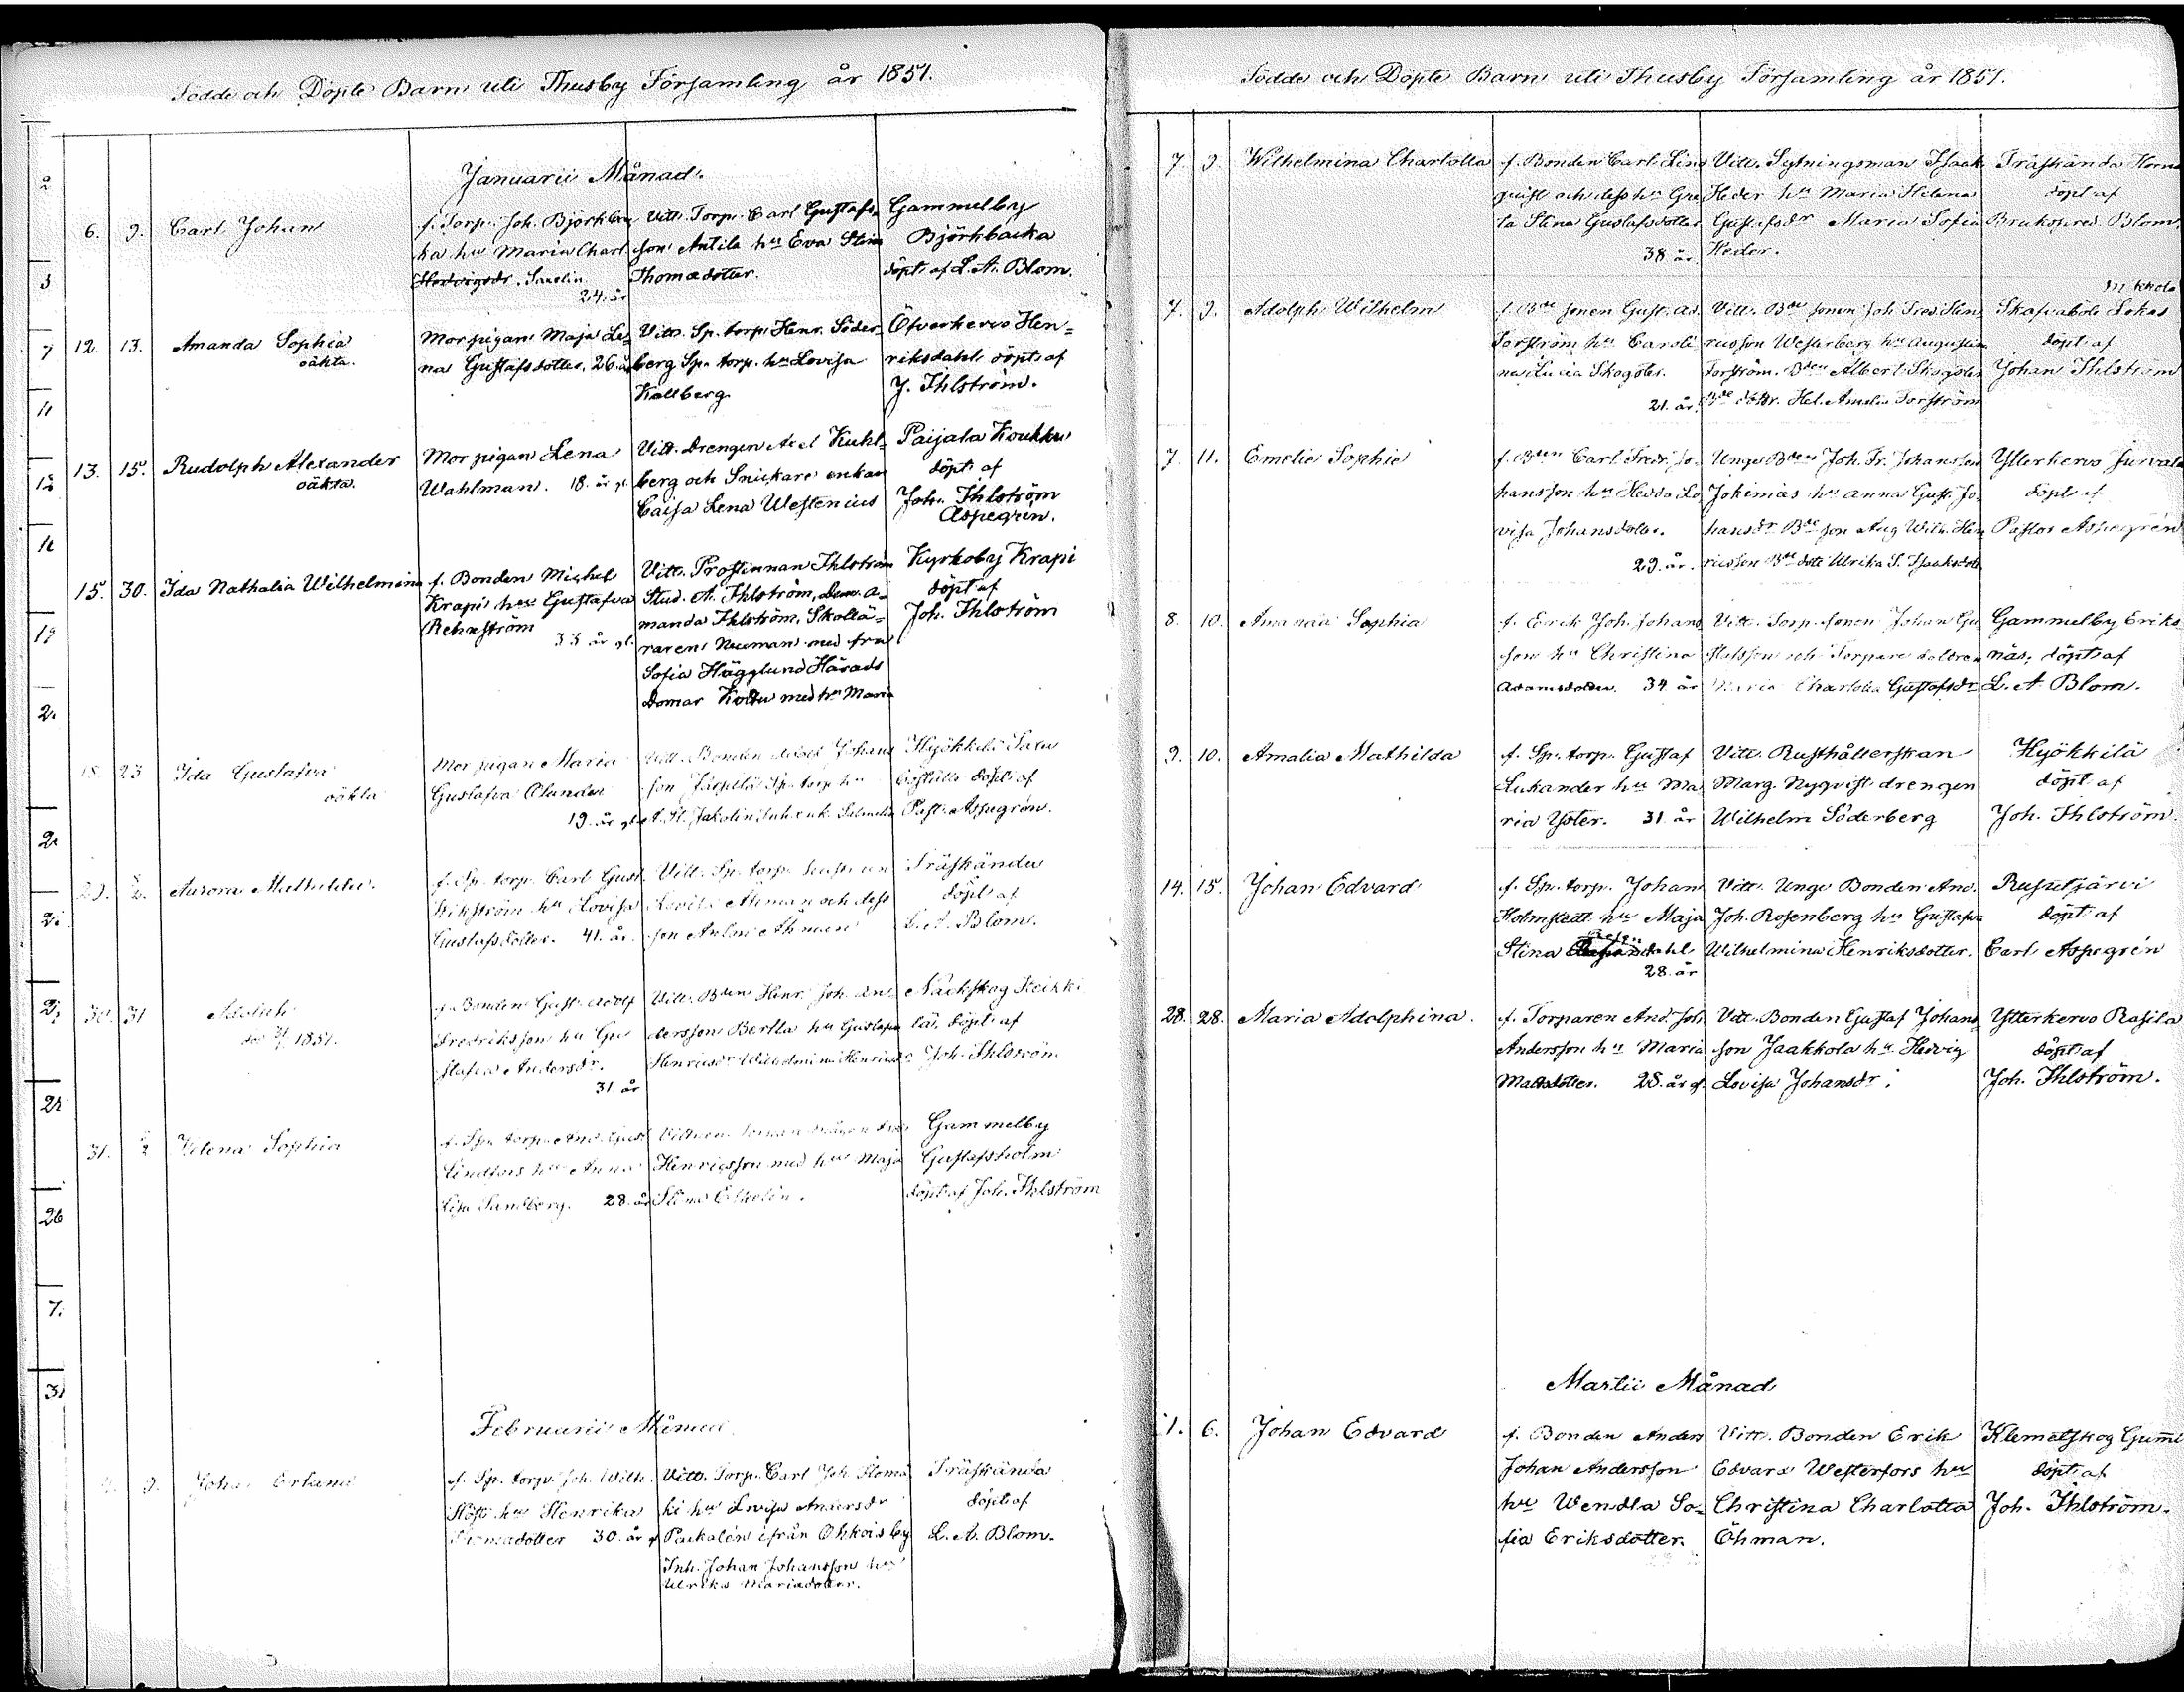 Födde och Döpte Barn uti Thusby Församling år 1851.
Januarii Månad.
6. 9. Carl Johan
f. Torp. Joh. Björkbac
ka hu Maria Charl
Hedvigsdr. Saxelin
24. år
Vitt. Torp. Carl Gustafs
son Antila hu Eva Stina
Thomædotter.
Gammelby
Björkbacka
döpt af L. A. Blom.
12. 13. Amanda Sophia
oäkta.
Mor pigan Maja Le
na Gustafsdotter. 26. år
Vittn. Sp. torp. Henr. Söder
berg Sp. torp. hu Lovisa
Kallberg
Öfverkervo Hen=
riksdahl döpt af
J. Ihlström.
13. 15. Rudolph Alexander
oäkta.
Mor pigan Lena
Wahlman. 18. år gl.
Vitt. Drengen Axel Kuhl=
berg och Snickare enkan
Caisa Lena Westenius
Paijala Koukku
döpt af
Joh. Ihlström
Aspegrén.
15. 30. Ida Nathalia Wilhelmina
f. Bonden Michel
Krapi hu Gustafva
Rehnström
33 år gl.
Vitt. Prostinnan Ihlström
Stud. A. Ihlström, Dem. A=
manda Ihlström, Skollä=
raren Neuman med fru
Sofia Hägglund Härads
Domar med hu Maria
Kyrkoby Krapi
döpt af
Joh. Ihlström
18. 23 Ida Gustafva
oäkta
Mor pigan Maria
Gustafva Olander
19. år gl.
Vitt. Bonden Johans
son Järpilä Sp. torp. hu
Hyökkilä Saxu
döpt af
Past. Aspegrén.
29. 2/2. Aurora Mathilda.
f. Sp. torp. Carl Gust
Vikström hu Lovisa
Gustafsdotter. 41. år.
Vitt. Sp. torp.
Lovisa Åhman och dess
son Anders Åhman
Träskända
döpt af
L. A. Blom.
30. 31 Adolph
1851.
f. Bonden Gust. Adolf
Fredriksson hu Gu
stafva Andersdr.
31 år
Vitt. Bden Henr. Joh. An
dersson Bertla hu Gustafva
Henriksdr Wilhelmina Henriksdr
Nackskog Heikki
lä, döpt af
Joh. Ihlström
31. 2/2 Helena Sophia
f. Sp. torp. And. Gust
Lindfors hu Anna
Lisa Sandberg. 28. år
Henricsson med hu Maja
Stina Ekholin.
Gammelby
Gustafsholm
döpt af Joh. Ihlström
Februarii Månad
9. Johan Erland
f. Sp. torp. Joh. Wilh.
hu Henrika
Tomædotter 30. år gl
Vitt. Torp. Carl Joh. Flomä
ki hu Lovisa Andersdr
Paikalén ifrån Ohkois by
Inh. Johan Johansson hu
Ulrika Mariadotter.
Träskända
döpt af
L. A. Blom.
Födde och Döpte Barn uti Thusby Församling år 1851.
7. 9. Wilhelmina Charlotta
f. Bonden Carl Lind
quist och dess hu Gre
ta Stina Gustafsdotter
38 år.
Vitt. Sytningsman Isaak
Heder hu Maria Helena
Gustafsdr Maria Sofia
Heder.
Träskända
döpt af
Brukspred. Blom.
7. 9. Adolph Wilhelm
f. Bde sonen Gust. Ad.
Forström hu Caroli
na Lucia Skogster.
21. år.
Vitt. Bde sonen Joh. Fred. Hen
ricsson Westerberg hu Augustina
Forström. Bden Albert Skogster
Bde dottr. Hel. Amalia Forström
Skafvaböle
döpt af
Johan Ihlström
7. 11. Emelie Sophie
f. Bden Carl Fredr. Jo
hansson hu Hedda Lo
visa Johansdotter.
29. år.
Unge Bden Joh. Fr. Johansson
Jokimies hu Anna Gust. Jo
hansdr Bde son Aug. Wilh. Hen
ricsson Bde dott. Ulrika S. Isaaksdott
Ytterkervo Jurvala
döpt af
Pastor Aspegrén
8. 10. Amanda Sophia
f. Erik Joh. Johans
son hu Christina
Adamsdotter. 34 år
Vitt. Torp. sonen Johan Gu
stafsson och Torpare dottren
Maria Charlotta Gustafsdr
Gammelby Eriks
näs, döpt af
L. A. Blom.
9. 10. Amalia Mathilda
f. Sp. torp. Gustaf
Lukander hu Ma
ria Yster. 31 år
Vitt. Rusthållerskan
Marg. Nyqvist drengen
Wilhelm Söderberg
Hyökkilä
döpt af
Joh. Ihlström.
14. 15. Johan Edvard
f. Sp. torp. Johan
Holmstedt hu Maja
Stina
28. år
Vitt. Unge Bonden And.
Joh. Rosenberg hu Gustafva
Wilhelmina Henriksdotter.
Rusutjärvi
döpt af
Carl Aspegrén
28. 28. Maria Adolphina.
f. Torparen And. Joh
Andersson hu Maria
Mattsdotter. 28. år gl.
Vitt. Bonden Gustaf Johans
son Jaakkola hu Hedvig
Lovisa Johansdr.
Ytterkervo Rasila
döpt af
Joh. Ihlström.
Martii Månad
1. 6. Johan Edvard
f. Bonden Anders
Johan Andersson
hu Wendla So=
fia Eriksdotter.
Vitt. Bonden Erik
Edvard Westerfors hu
Christina Charlotta
Öhman.
Klemetskog
döpt af
Joh. Ihlström.